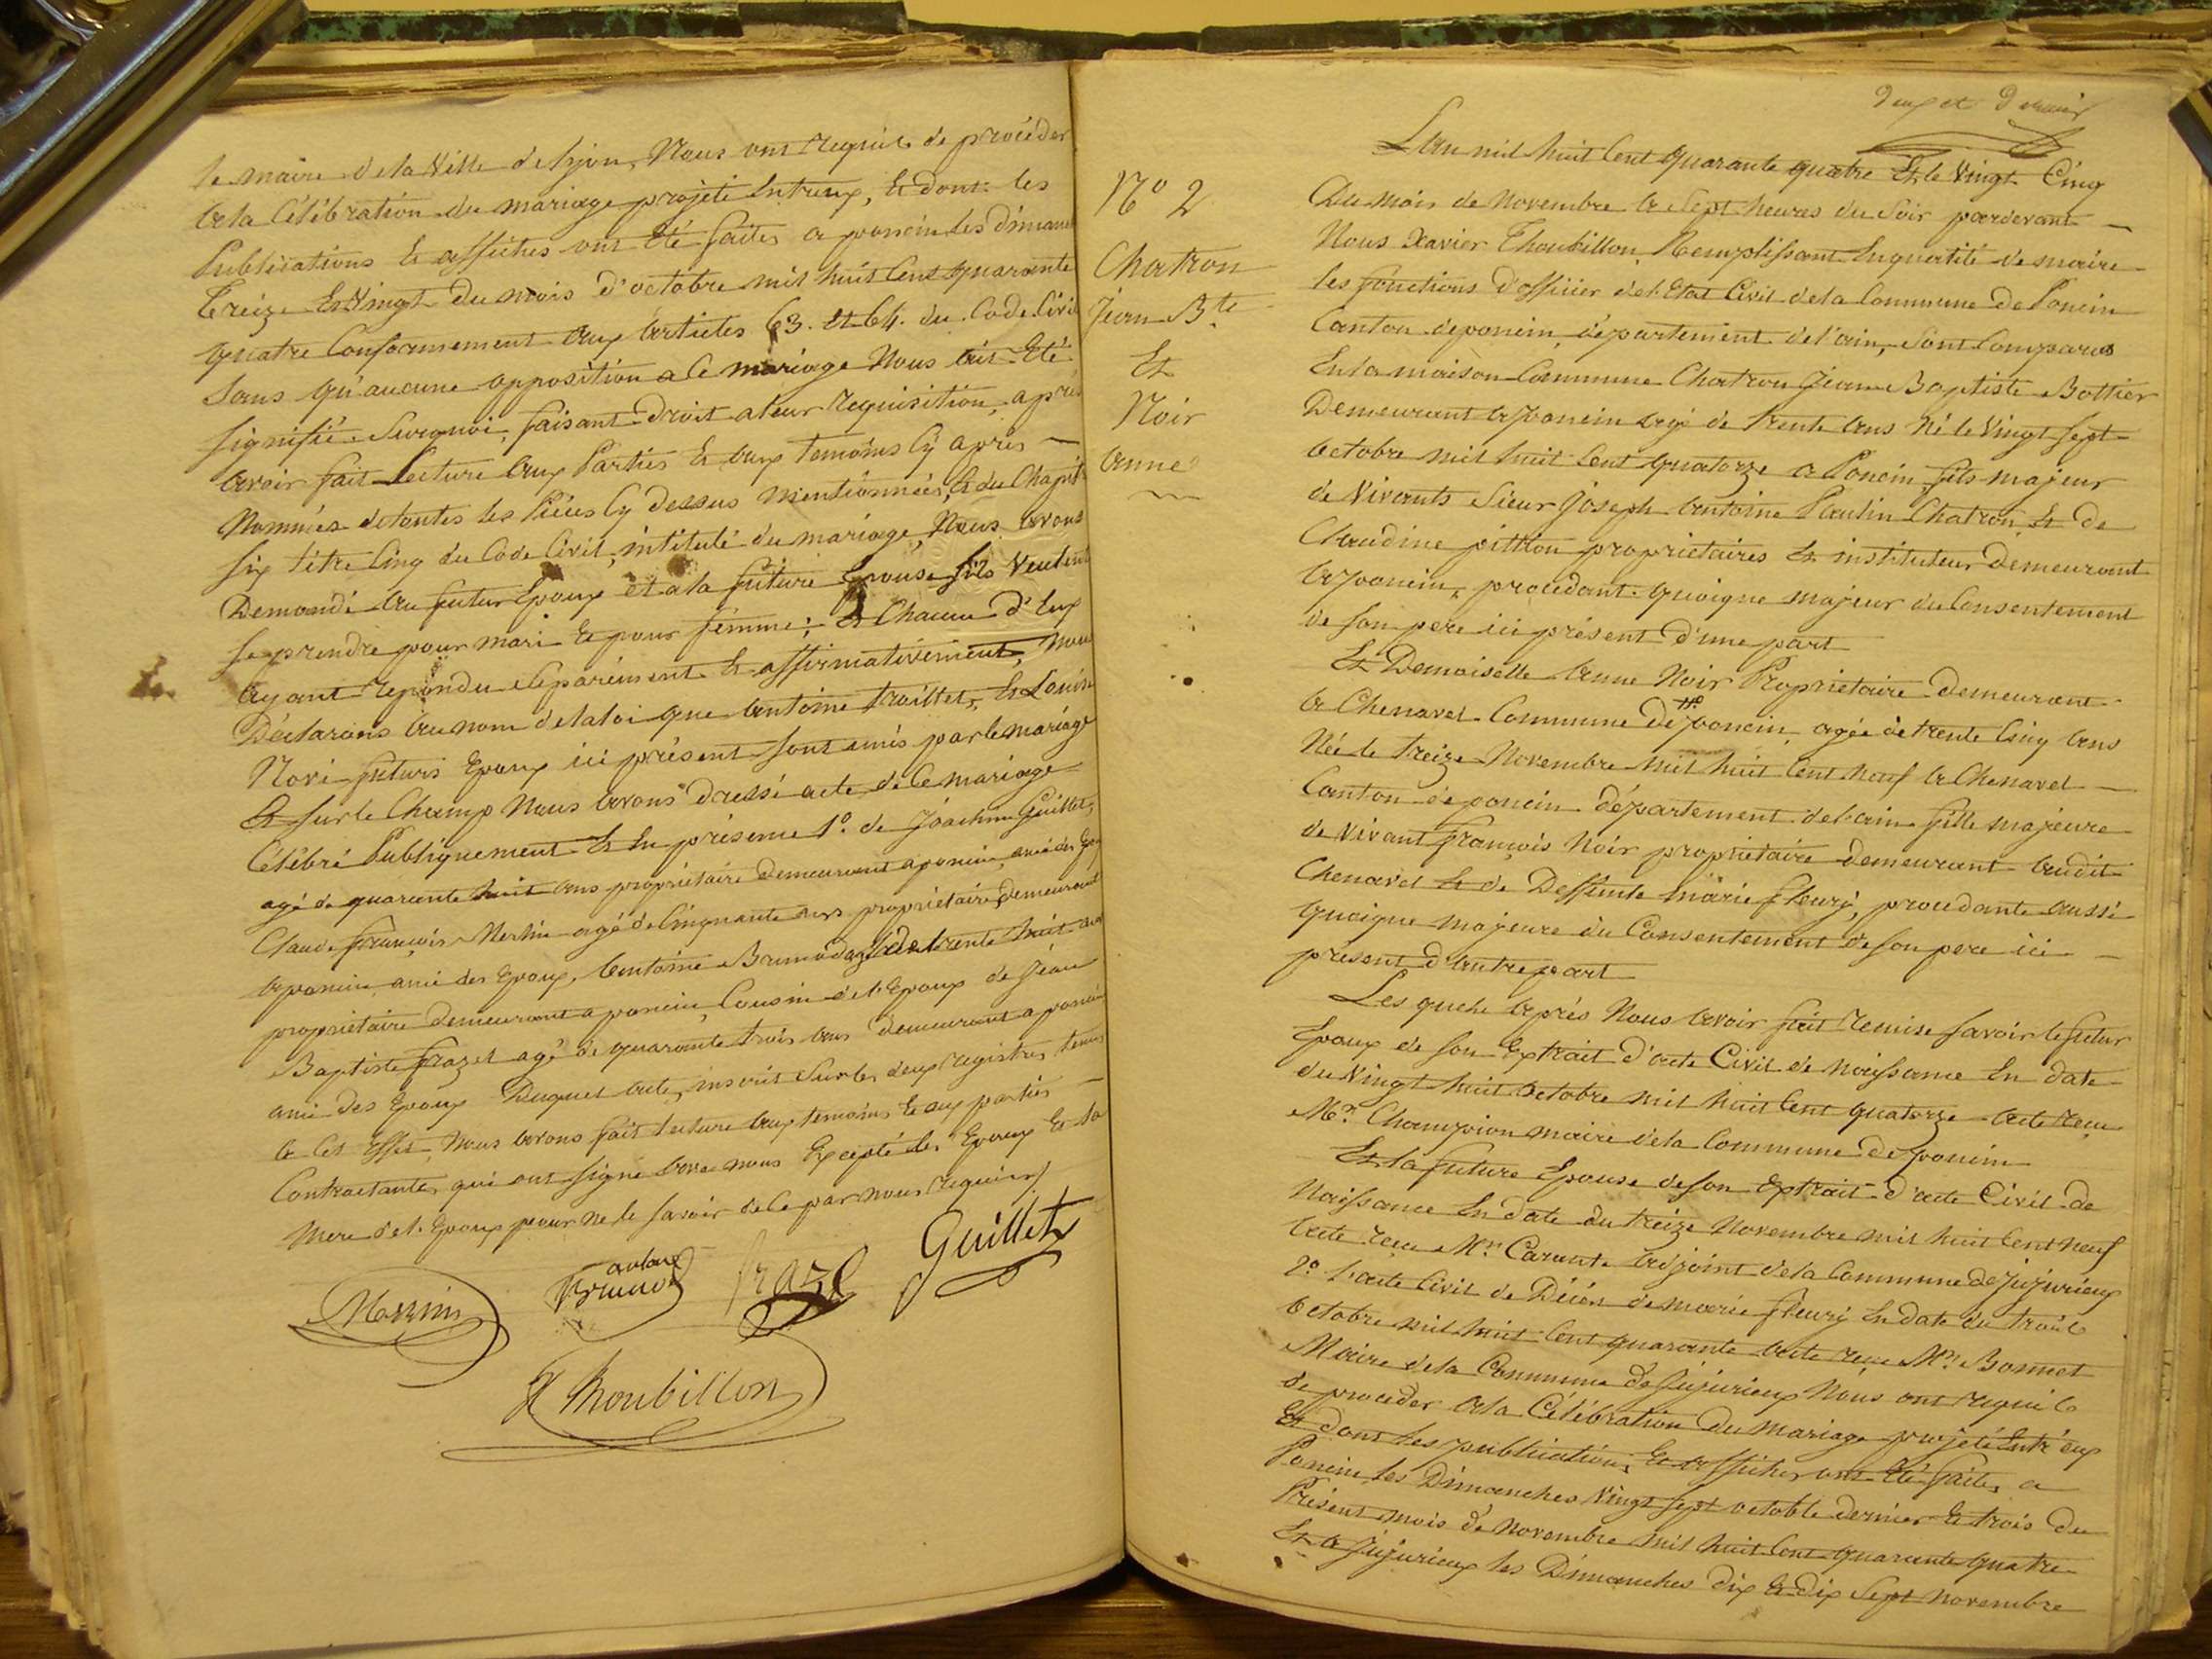 le maire de la Ville de lyon, Nous ont requis de procéder
a la Célébration du mariage projeté Entreux, Et dont les
Publications Et affiches ont Eté faites a poncin les dimanc
treize Et Vingt du mois d'octobre mil huit Cent quarante
quatre Conformement aux articles 63. Et 64. du Code Civil
Sans qu'aucune opposition a Ce mariage Nous ait Eté
Signifié. Surquoi, faisant droit a leur requisition, après
avoir fait lecture aux Parties Et aux temoins Cy après —
Nommés de toutes les Pièces Cy dessus mentionnées, Et du Chapit
Six titre Cinq du Code Civil, intitulé du mariage, Nous avons
Demandé au futur Epoux et a la future Epouse s'ils Veulent
se prendre pour mari Et pour femme; Et Chacun d'Eux
ayant repondu Séparément Et affirmativement, nous
Déclarons au nom de la loi que antoine traillet, Et Louise
Nori futurs Epoux ici présent sont unis par le mariage
Et sur le Champ Nous avons dressé acte de Ce mariage
Célébré Publiquement Et En présence 1º. de Joachin Guillet,
agé de quarante huit ans propriétaire demeurant a poncin, ami des Epx
Claude françois Merlin agé de Cinquante ans propriétaire demeurant
a poncin ami des Epoux, antoine Brunod agé de trente huit ans
propriétaire demeurant a poncin, Cousin de l'Epoux de Jean
Baptiste frazel agé de quarante trois ans demeurant a poncin
ami des Epoux Duquel acte, inscrit sur les deux registres tenus
a Cet Effet, Nous avons fait lecture aux temoins Et aux parties —
Contractantes qui ont signé avec nous Excepté les Epoux Et la
Mere de l'Epoux pour ne le savoir de Ce par nous requis
Guillet
antoine
Brunod
frazel
X Thoubillon
deux et dernier
Nº 2
Chatron
Jean Bte
Et
Noir
anne
L'an mil huit Cent quarante quatre Et le Vingt Cinq
Du mois de Novembre a Sept heures du Soir pardevant —
Nous Xavier Thoubillon, Remplissant En qualité de maire
les fonctions d'officier de l'Etat Civil de la Commune De Poncin
Canton de poncin, département de l'ain, Sont Comparus
En la maison Commune Chatron Jean Baptiste Bottier
Demeurant a poncin agé de trente ans Né le Vingt Sept
octobre mil huit Cent quatorze a Poncin, fils majeur
de Vivants Sieur Joseph antoine Paulin Chatron Et de
Claudine pittion propriétaires Et instituteur Demeurant
a poncin, procédant quoique majeur du Consentement
de son pere ici présent d'une part
Et Demoiselle anne Noir Propriétaire demeurant
a Chenavel Commune de poncin, agée de trente Cinq ans
Née le treize Novembre mil huit Cent neuf a Chenavel —
Canton de poncin département de l'ain fille majeure
de Vivant françois Noir propriétaire demeurant audit
Chenavel Et de Deffunte marie fleury, procédante aussi
quoique majeure du Consentement de son pere ici —
present d'autre part
Les quels après Nous avoir fait remise savoir le futur
Epoux de son Extrait d'acte Civil de Naissance En date
du Vingt huit octobre mil huit Cent quatorze acte reçu
Mr. Champion maire de la Commune de poncin
Et la future Epouse de son Extrait d'acte Civil de
Naissance En date du treize Novembre mil huit Cent neuf
acte reçu Mr. adjoint de la Commune de jujurieux
2º l'acte Civil de Décès de marie fleury En date du trois
octobre mil huit Cent quarante acte reçu Mr. Bonnet
Maire de la Commune de Jujurieux Nous ont requis
de proceder a la Célébration du mariage projeté Entr'eux
Et dont les publications Et affiches ont Eté faites a
Poncin les Dimanches Vingt sept octobre dernier Et trois du
Présent mois de Novembre mil huit Cent quarante quatre
Et a Jujurieux les Dimanches dix Et dix Sept Novembre